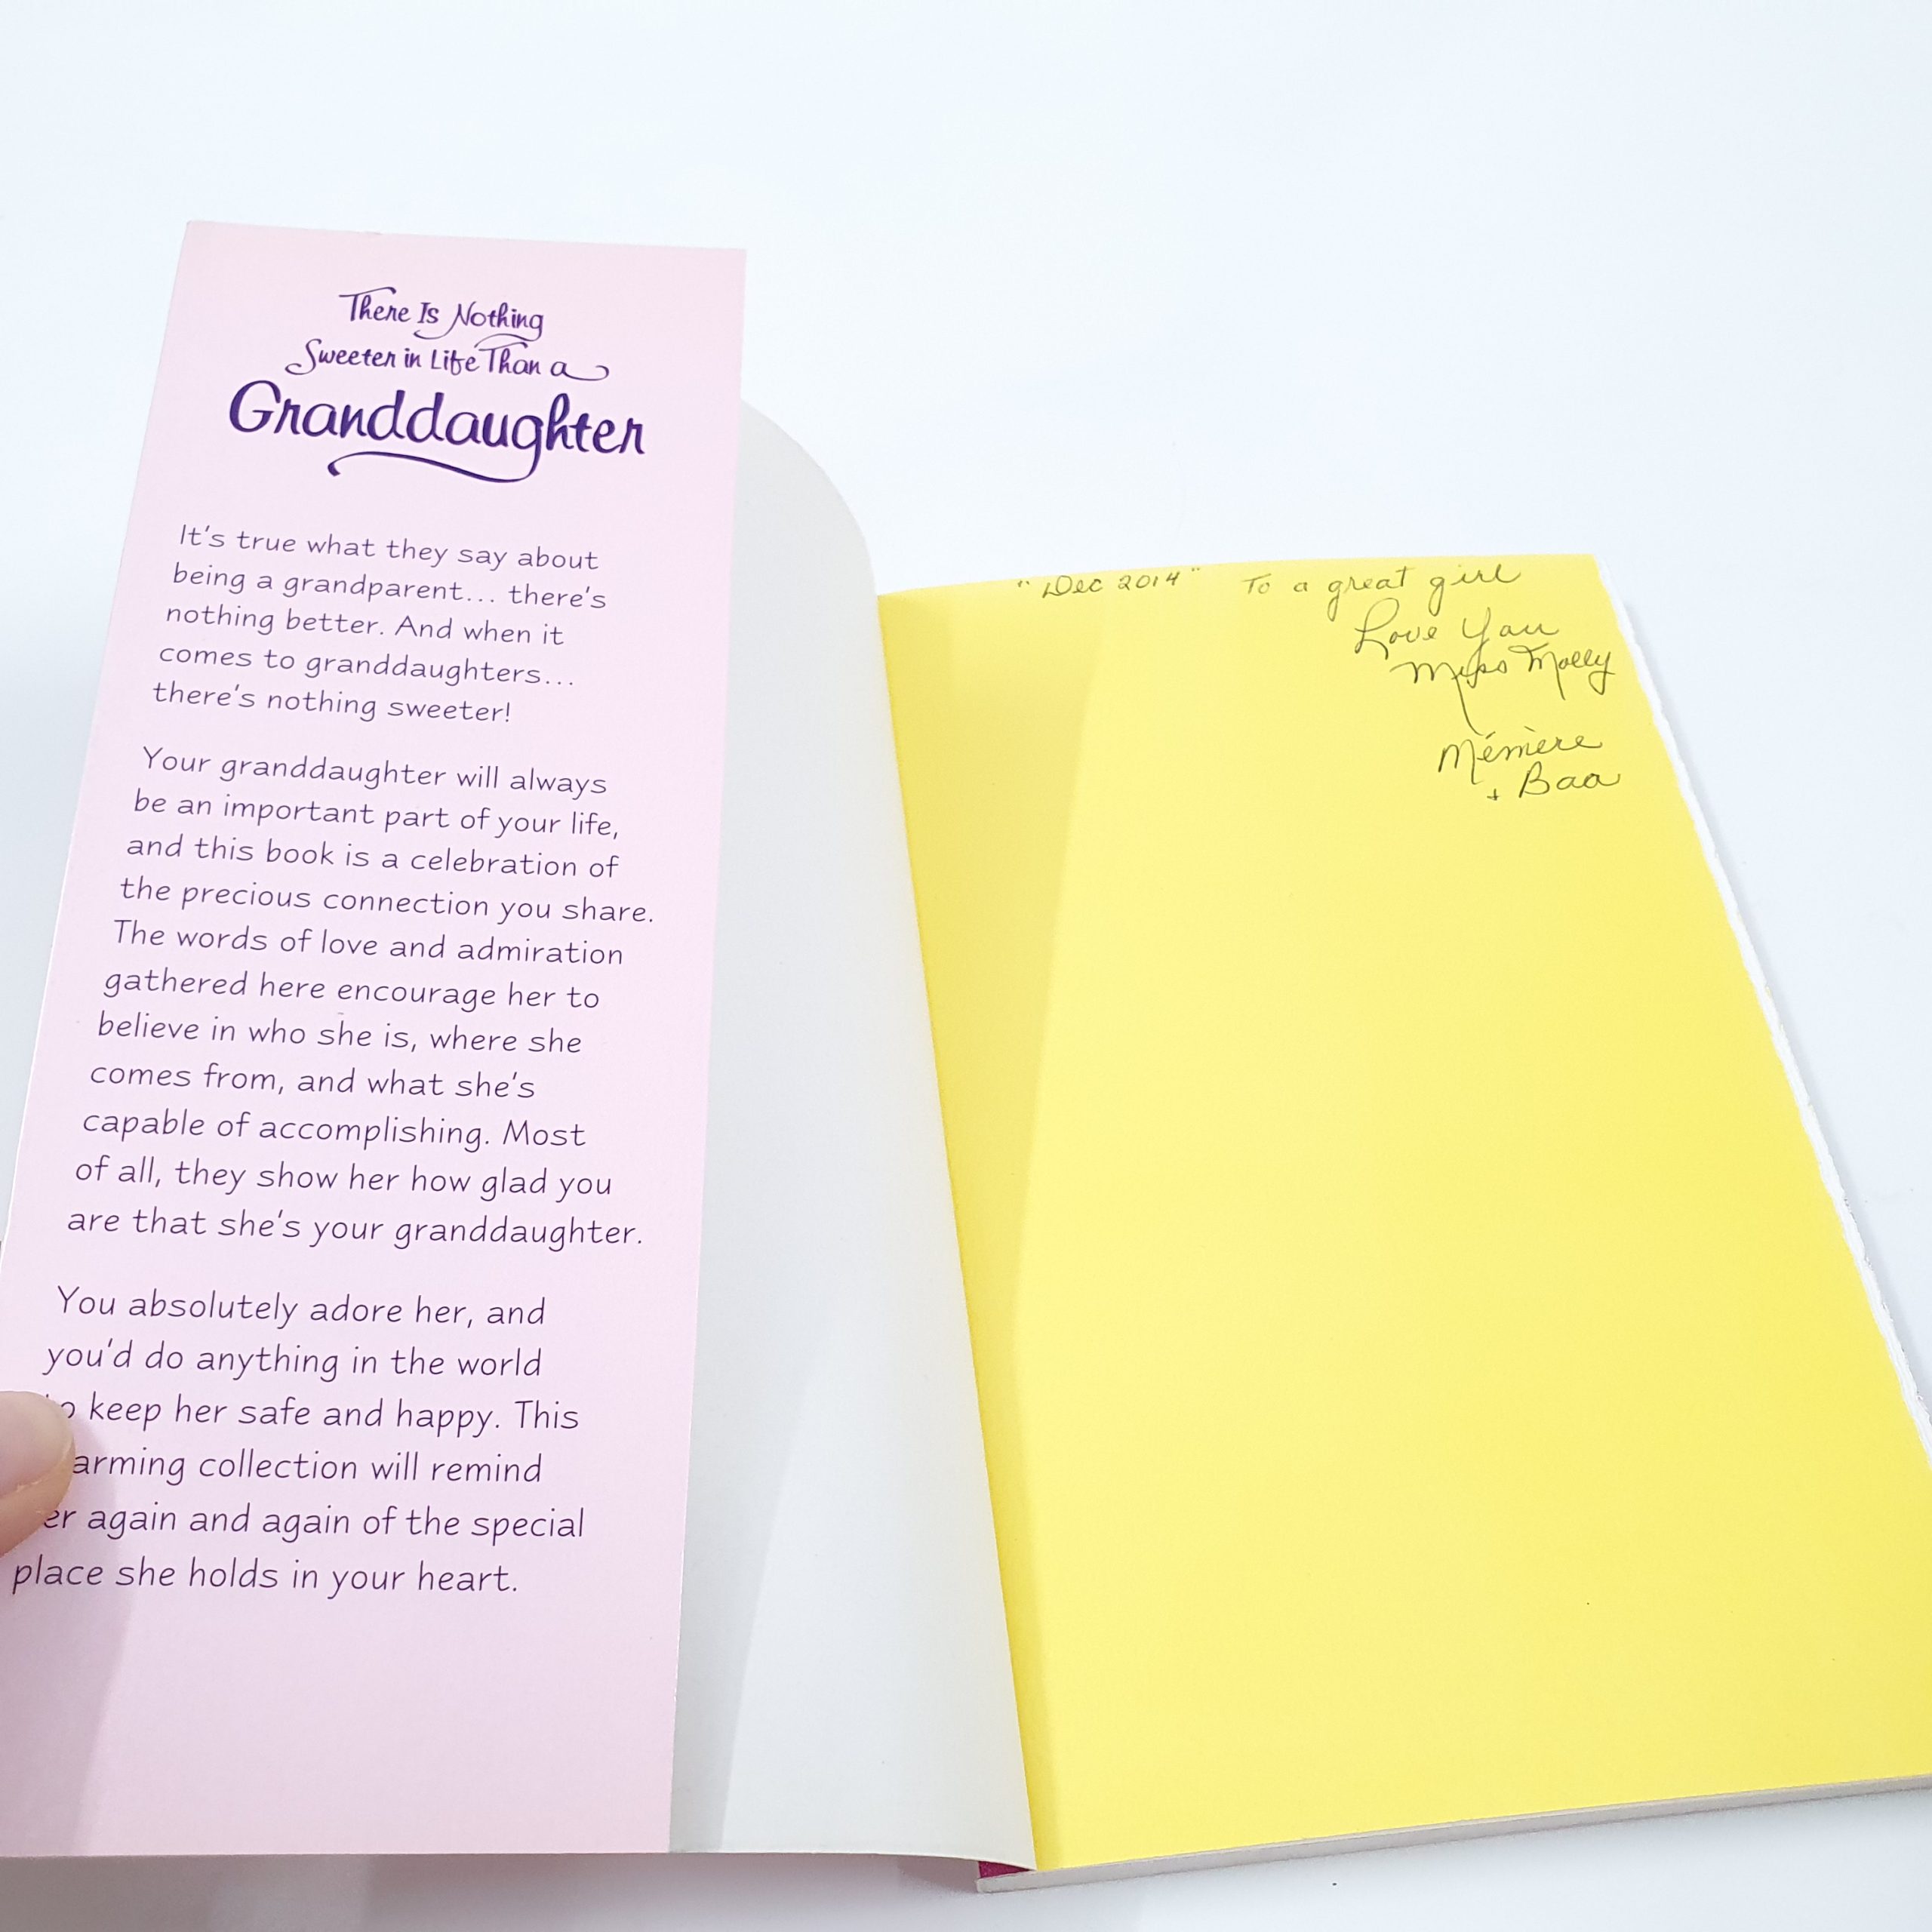 There Is Nothing
Sweeter in Life Than a
Granddaughter
It's true what they say about
being a grandparent... there's
nothing better. And when it
comes to granddaughters...
there's nothing sweeter!
Your granddaughter will always
be an important part of your life,
and this book is a celebration of
the precious connection you share.
The words of love and admiration
gathered here encourage her to
believe in who she is, where she
comes from, and what she's
capable of accomplishing. Most
of all, they show her how glad you
are that she's your granddaughter.
You absolutely adore her, and
you'd do anything in the world
keep her safe and happy. This
collection will remind
again and again of the special
place she holds in your heart.
"Dec 2014" To a great girl
Love You
Miss Molly
Mémère
+ Baa